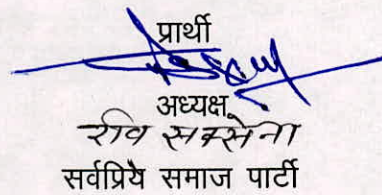 प्रार्थी
अध्यक्ष
रवि सक्सेना
सर्वप्रिये समाज पार्टी